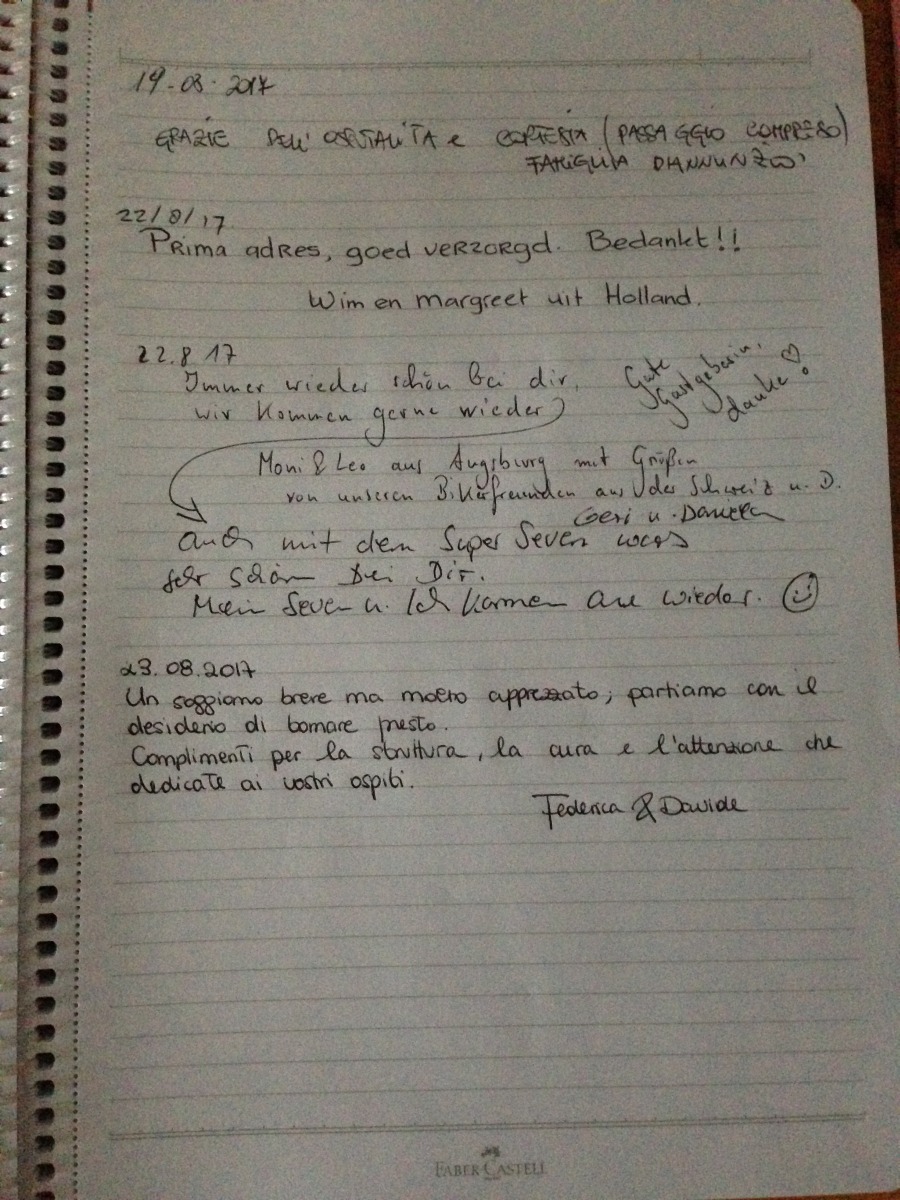 19-08-2017
GRAZIE DELL'OSPITALITÀ e CORTESIA (PASSAGGIO COMPRESO)
FAMIGLIA DIANNUNZIO
22/8/17.
Prima adres, goed verzorgd. Bedankt!!
Wim en margreet uit Holland.
22.8 17
Immer wieder schön bei dir,
wir kommen gerne wieder
Gute
Gastgeberin,
danke! ♡
Moni & Leo aus Augsburg mit Grüßen
von unseren Bikerfreunden aus der Schweiz u. D.
Geri u. Daniela
auch mit dem Super Seven wars
sehr schön bei Dir.
Mein Seven u. Ich kommen wieder. ☺
23.08.2017
Un soggiorno breve ma molto apprezzato; partiamo con il
desiderio di tornare presto.
Complimenti per la struttura, la cura e l'attenzione che
dedicate ai vostri ospiti.
Federica & Davide
FABER-CASTELL